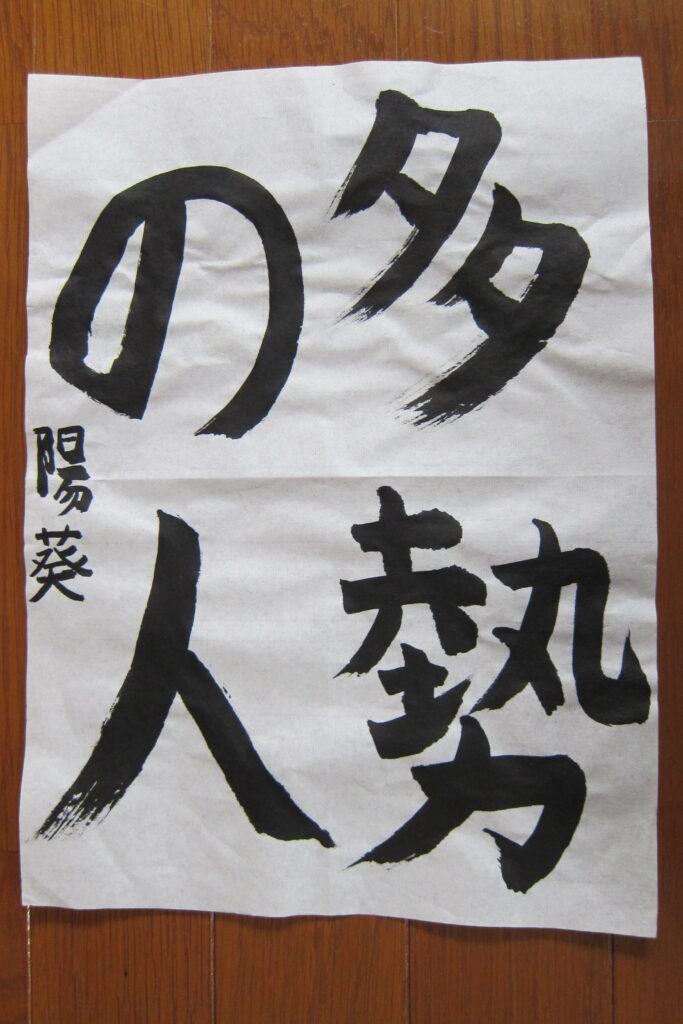 多勢
の人
陽葵